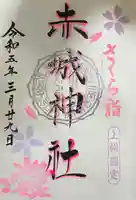 さくら詣
赤城神社
令和五年三月廿九日